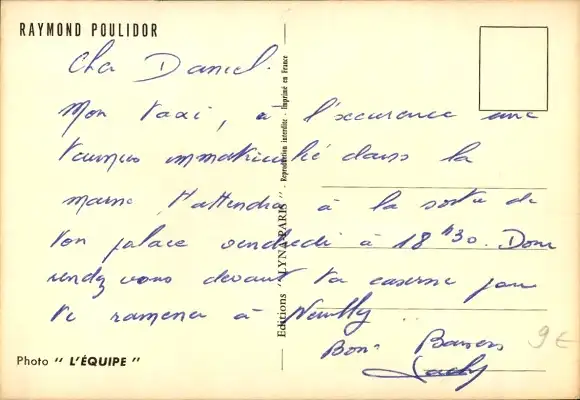 RAYMOND POULIDOR
Cher Daniel.
Mon taxi, à l'occurence une
Taunus immatriculé dans la
marne t'attendra à la sortie de
ton palace vendredi à 18h30. Donc
rendez vous devant ta caserne pour
te ramener à Neuilly
Bons Baisers
9€
Photo " L'ÉQUIPE "
Editions " LYNA-PARIS " - Reproduction interdite - Imprimé en France